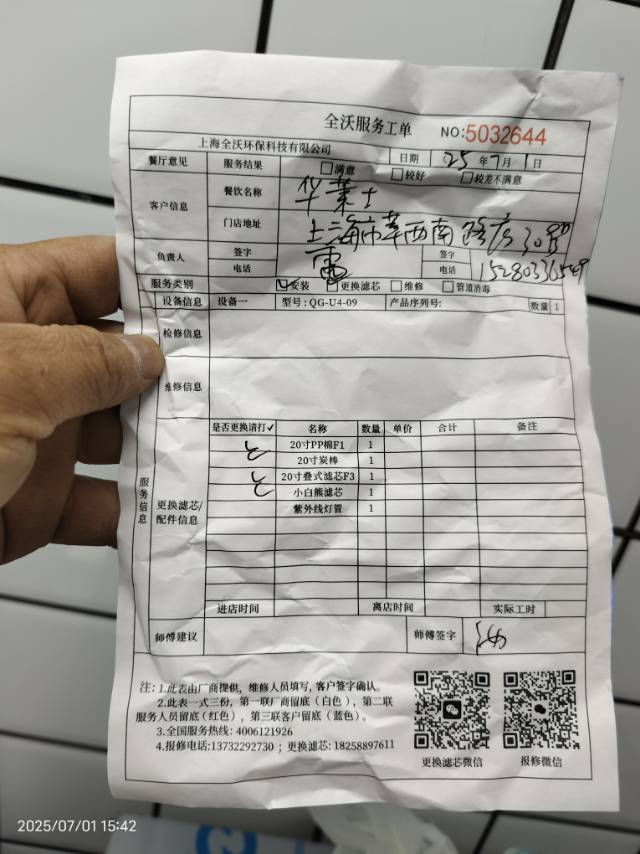 全沃服务工单 NO:5032644
上海全沃环保科技有限公司 日期 25年7月1日
餐厅意见 服务结果 满意 较好 较差不满意
客户信息 餐饮名称 华莱士
门店地址 上海市莘西南路店30号
负责人 签字 雷 签字
电话 电话
服务类别 安装 更换滤芯 维修 管道消毒
设备信息 设备一 型号:QG-U4-09 产品序列号: 数量 1
检修信息
维修信息
服务信息
更换滤芯/配件信息
是否更换请打✓ 名称 数量 单价 合计 备注
20寸PP棉F1 1
20寸炭棒 1
20寸叠式滤芯F3 1
小白熊滤芯 1
紫外线灯管 1
进店时间 离店时间 实际工时
师傅建议 师傅签字
注:1.此表由厂商提供,维修人员填写,客户签字确认。
2.此表一式三份,第一联厂商留底(白色),第二联
服务人员留底(红色),第三联客户留底(蓝色)。
3.全国服务热线:4006121926
4.报修电话:13732292730;更换滤芯:18258897611
更换滤芯微信 报修微信
2025/07/01 15:42